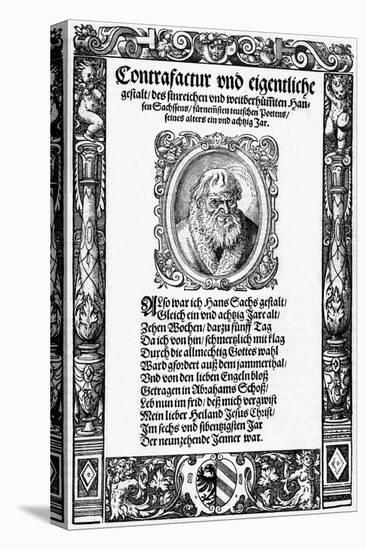 Contrafactur vnd eigentliche
gestalt/ des sinreichen vnd weitberhümten Han-
sen Sachssens/ fürnemsten teutschen Poetens/
seines alters ein vnd achtzig Jar.
ALso war ich Hans Sachs gestalt/
Gleich ein vnd achtzig Jar alt/
Zehen Wochen/ darzu fünff Tag
Da ich von hin/ schmertzlich mit klag
Durch die allmechtig Gottes wahl
Ward gfordert auß dem jammerthal/
Vnd von den lieben Engeln bloß
Getragen in Abrahams Schoß/
Leb nun im frid/ deß mich vergwist
Mein lieber Heiland Jesus Christ/
Im sechs vnd sibentzigsten Jar
Der neunzehende Jenner war.